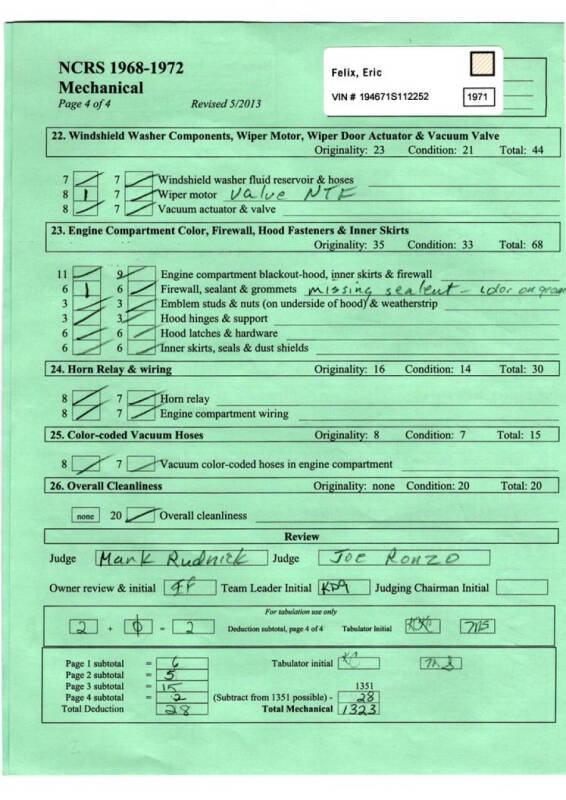 NCRS 1968-1972
Mechanical
Page 4 of 4 Revised 5/2013
Felix, Eric
VIN # 194671S112252 1971
22. Windshield Washer Components, Wiper Motor, Wiper Door Actuator & Vacuum Valve
Originality: 23 Condition: 21 Total: 44
7 7 Windshield washer fluid reservoir & hoses
8 1 7 Wiper motor Valve NTF
8 7 Vacuum actuator & valve
23. Engine Compartment Color, Firewall, Hood Fasteners & Inner Skirts
Originality: 35 Condition: 33 Total: 68
11 9 Engine compartment blackout-hood, inner skirts & firewall
6 1 6 Firewall, sealant & grommets missing sealent - color on
3 3 Emblem studs & nuts (on underside of hood) & weatherstrip
3 3 Hood hinges & support
6 6 Hood latches & hardware
6 6 Inner skirts, seals & dust shields
24. Horn Relay & wiring Originality: 16 Condition: 14 Total: 30
8 7 Horn relay
8 7 Engine compartment wiring
25. Color-coded Vacuum Hoses Originality: 8 Condition: 7 Total: 15
8 7 Vacuum color-coded hoses in engine compartment
26. Overall Cleanliness Originality: none Condition: 20 Total: 20
none 20 Overall cleanliness
Review
Judge Mark Rudnick Judge Joe Ronzo
Owner review & initial Team Leader Initial Judging Chairman Initial
For tabulation use only
2 + 0 = 2 Deduction subtotal, page 4 of 4 Tabulator Initial
Page 1 subtotal = 6 Tabulator initial
Page 2 subtotal = 5
Page 3 subtotal = 15 1351
Page 4 subtotal = 2 (Subtract from 1351 possible) - 28
Total Deduction 28 Total Mechanical 1323